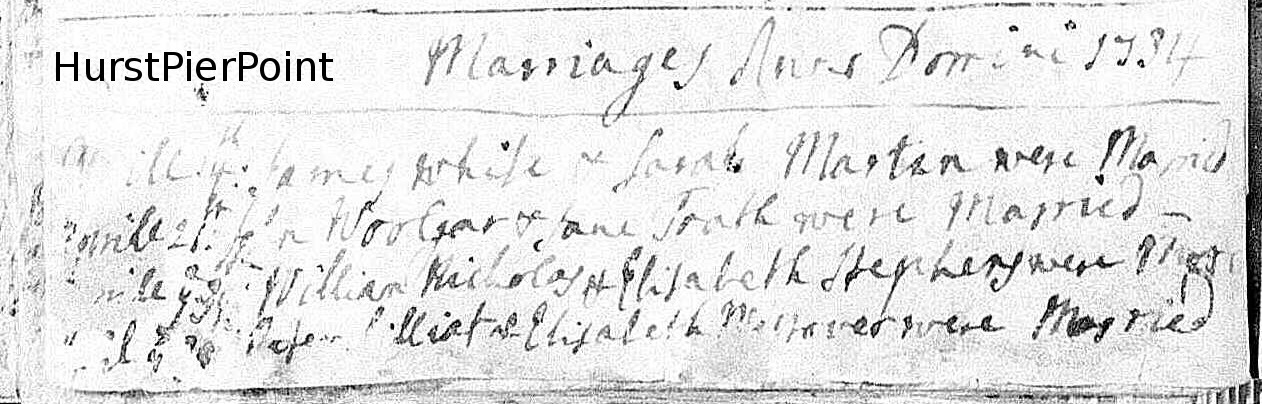 HurstPierPoint
Marriages Anno Domini 1734
James white & Sarah Martin were Married
Aprille 21st Jon Woolgar & Jane Trath were Married
William Nicholas & Elisabeth Stephens were
Elliot & Elisabeth were Married